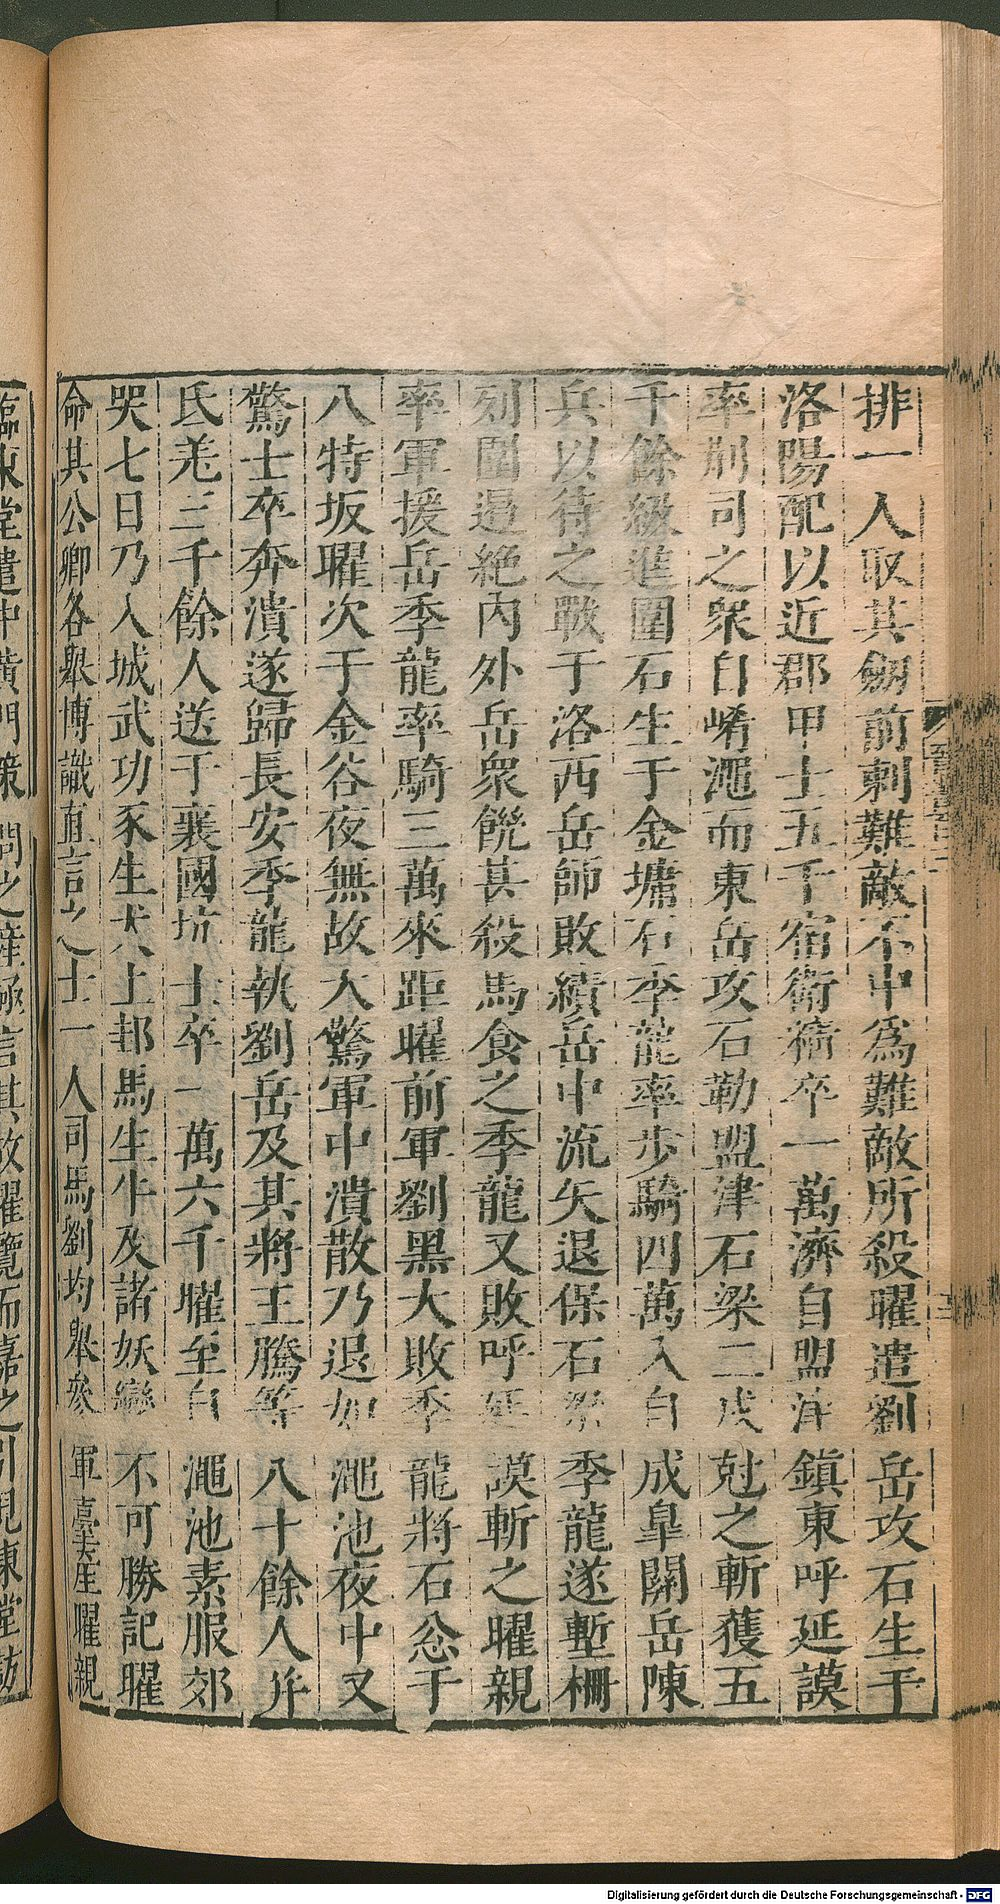 排一人取其劒前刺難敵不中爲難敵所殺曜遣劉岳攻石生于
洛陽配以近郡甲士五千宿衛精卒一萬濟自盟津鎮東呼延謨
率荆司之衆自崤澠而東岳攻石勒盟津石梁二戍尅之斬獲五
千餘級進圍石生于金墉石季龍率步騎四萬入自成臯關岳陳
兵以待之戰于洛西岳師敗績岳中流矢退保石梁季龍遂塹柵
列圍遏絶内外岳衆飢甚殺馬食之季龍又敗呼延謨斬之曜親
率軍援岳季龍率騎三萬來距曜前軍劉黑大敗季龍將石忩于
八特坂曜次于金谷夜無故大驚軍中潰散乃退如澠池夜中又
驚士卒奔潰遂歸長安季龍執劉岳及其將王騰等八十餘人并
氐羌三千餘人送于襄國坑士卒一萬六千曜至自澠池素服郊
哭七日乃入城武功豕生犬上邽馬生牛及諸妖變不可勝記曜
命其公卿各舉博識直言之士一人司馬劉均舉參軍臺産曜親
臨東堂遣中黄門策問之産極言其故曜覽而嘉之引見東堂訪
Digitalisierung gefördert durch die Deutsche Forschungsgemeinschaft - DFG